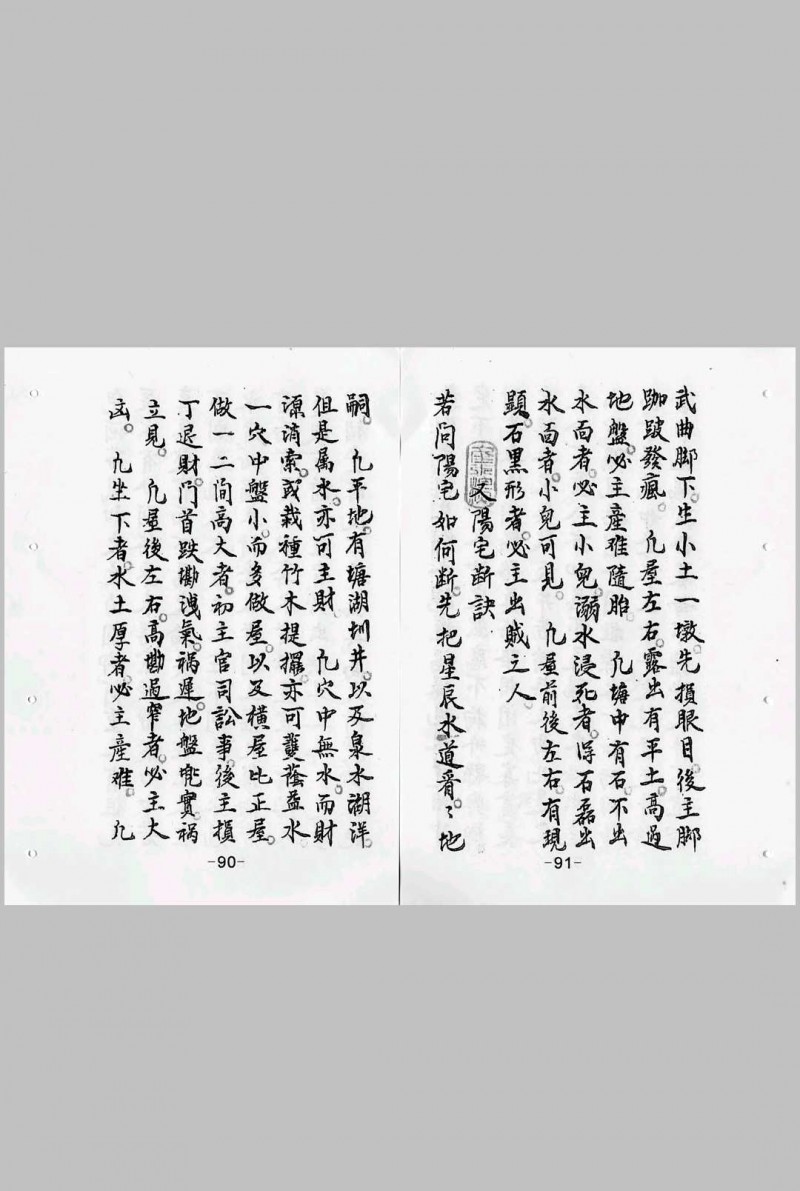 嗣。凢平地。有塘湖圳井。以及泉水湖洋。
但是属水。亦可主財。凢穴中無水。而財
源消索。或栽種竹木提擺。亦可蔭益水
一穴中盤小。而多做屋。以及橫屋比正屋。
做一二间高大者。初主官司訟事。後主損
丁退財。門首跌墈洩氣。祸遲。地盤實。祸
立見。凢屋後左右。高墈過窄者。必主大
凶。凢坐下者。水土厚者。必主產难。凢
-90-
武曲脚下。生小土一墩。先損眼目。後主脚
跏跛發瘋。凢屋左右。露出有平土。高過
地盤。必主產难隨胎。凢塘中有石。不出
水面者。必主小兒。溺水浸死者。浮石磊出
水面者。小兒可見。凢屋前後左右。有現
顕。石黑形者。必主出賊之人。
又陽宅断訣
若问陽宅如何断。先把星辰水道看。〻地
-91-